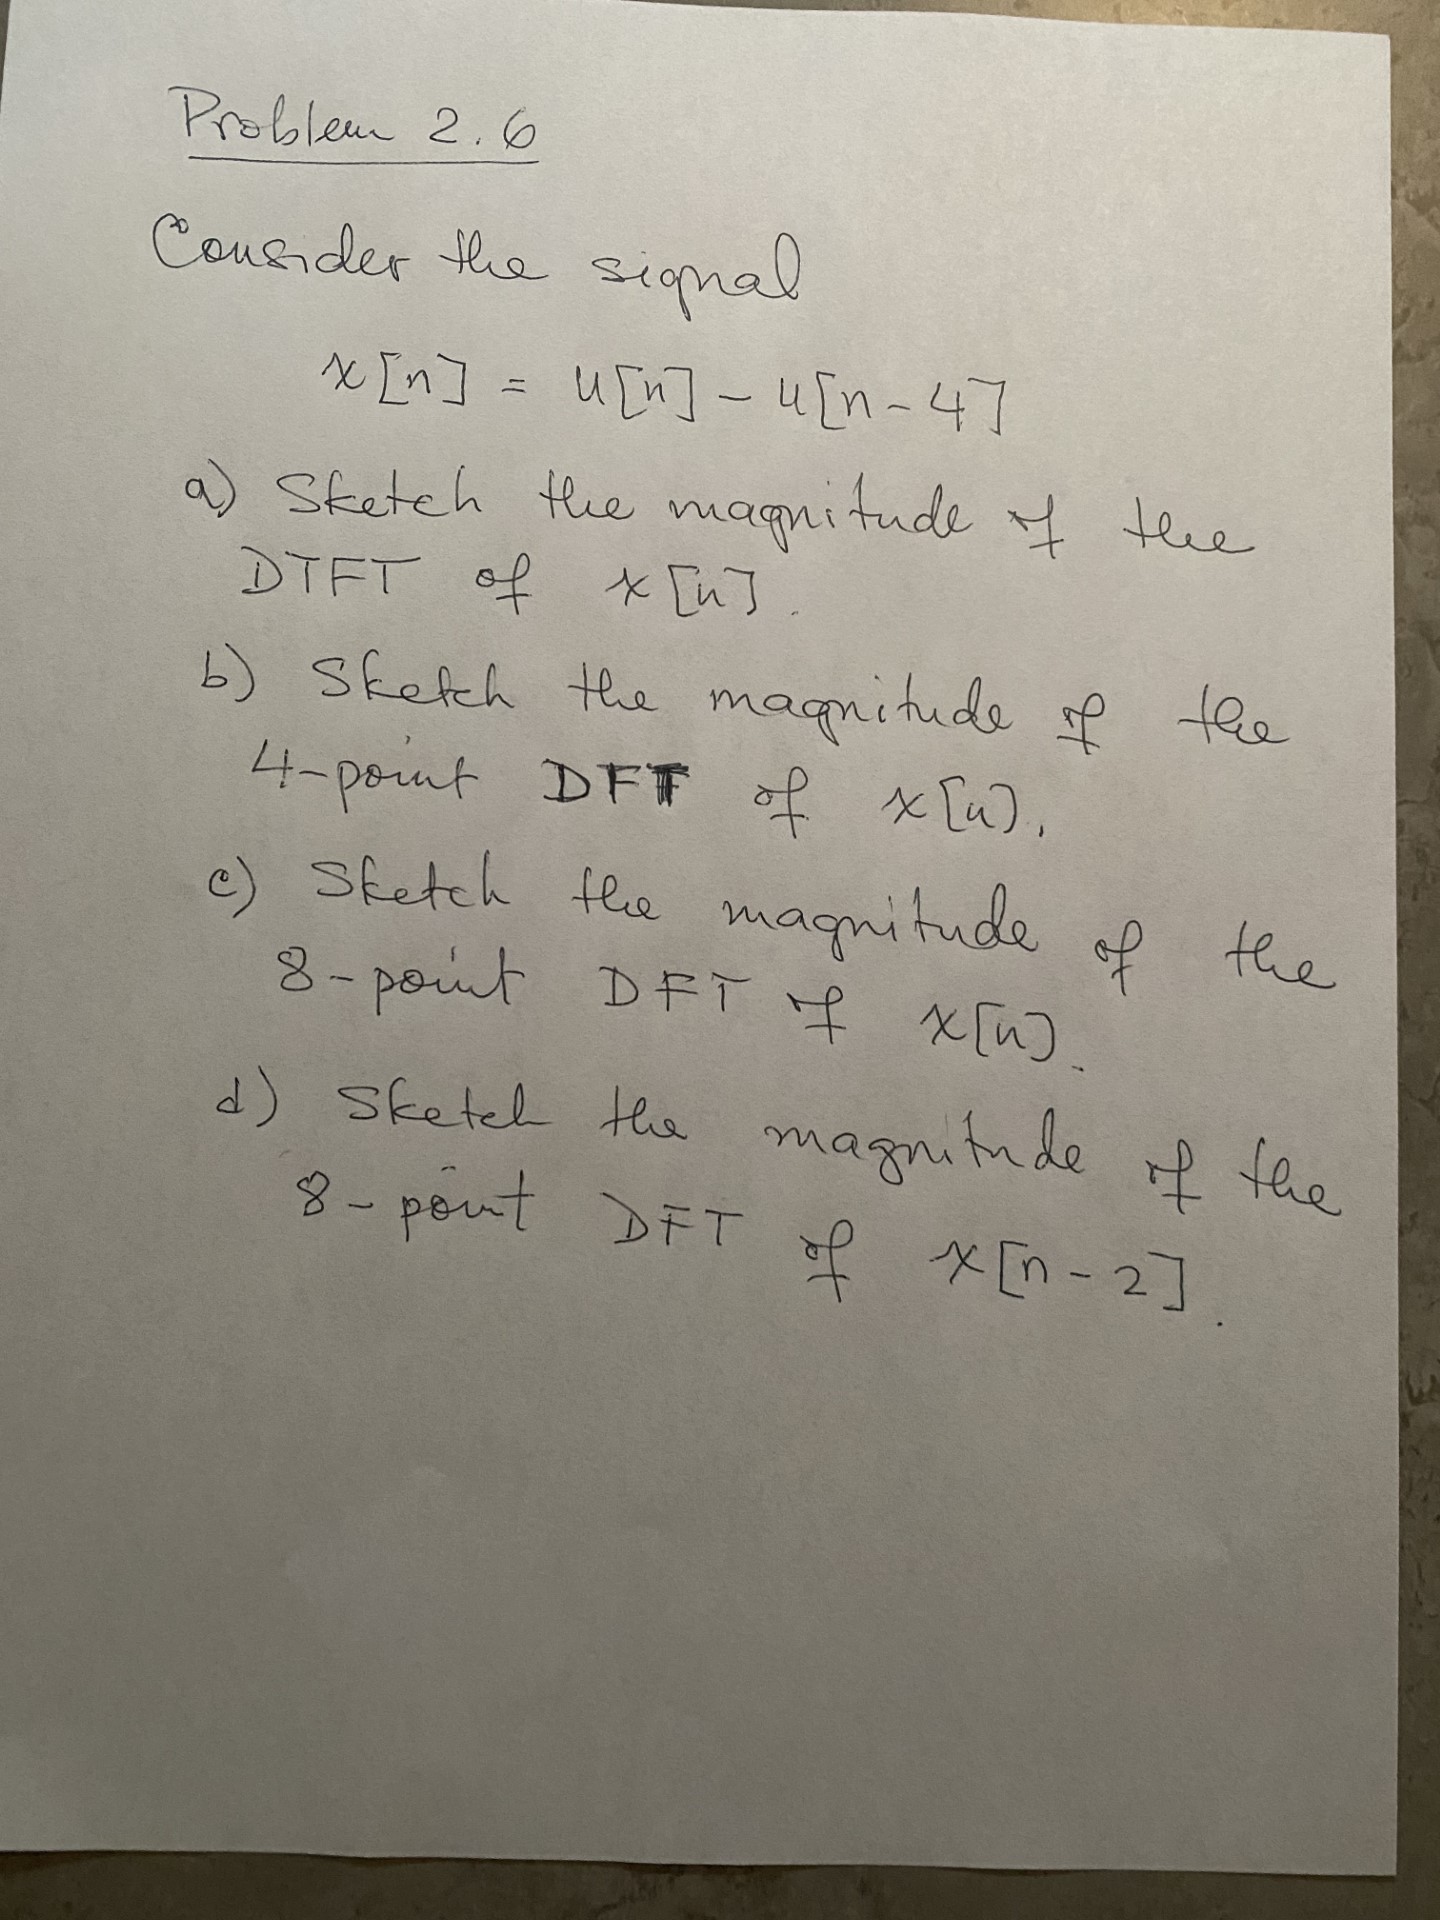 Problem 2.6
Consider the signal
x[n] = u[n] - u[n-4]
a) Sketch the magnitude of the
DTFT of x[n].
b) Sketch the magnitude of the
4-point DFT of x[n].
c) Sketch the magnitude of the
8-point DFT of x[n].
d) Sketch the magnitude of the
8-point DFT of x[n-2].